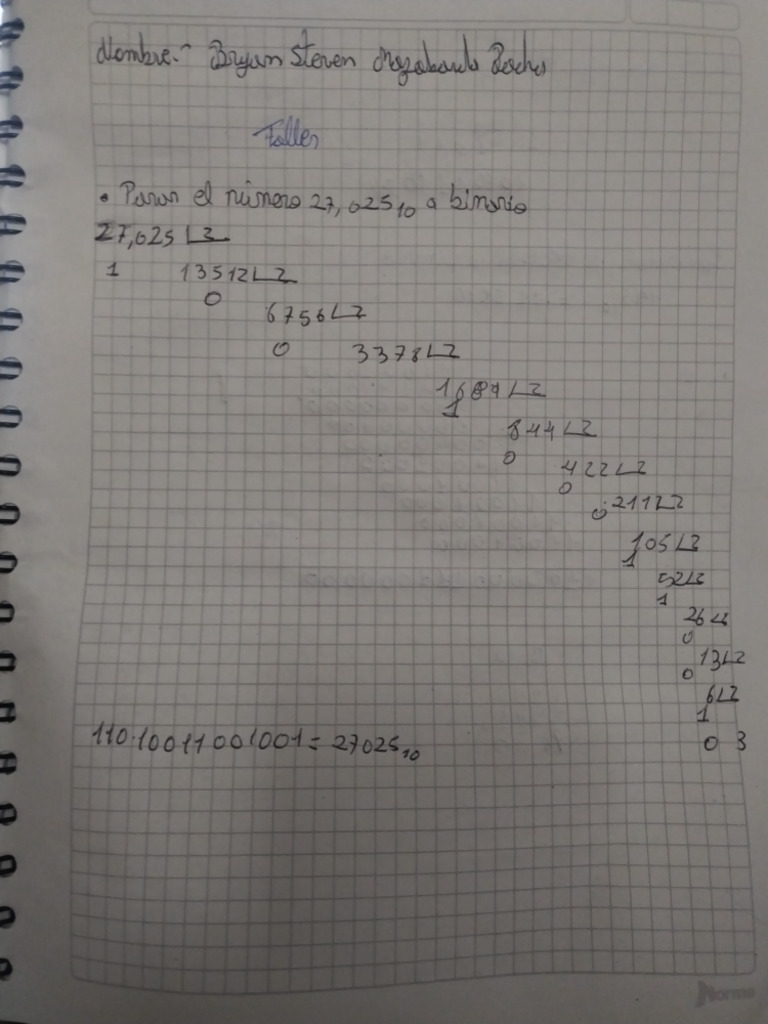 Nombre:- Bryan Steven
Taller
• Pasar el número 27,025₁₀ a binario
27,025 ∟2
1 13512∟2
0 6756∟2
0 3378∟2
1689∟2
1 844∟2
0 422∟2
0 211∟2
0 105∟2
1 52∟2
1 26∟2
0 13∟2
0 6∟2
1
11010011001001 = 27025₁₀ 0 3
Norma